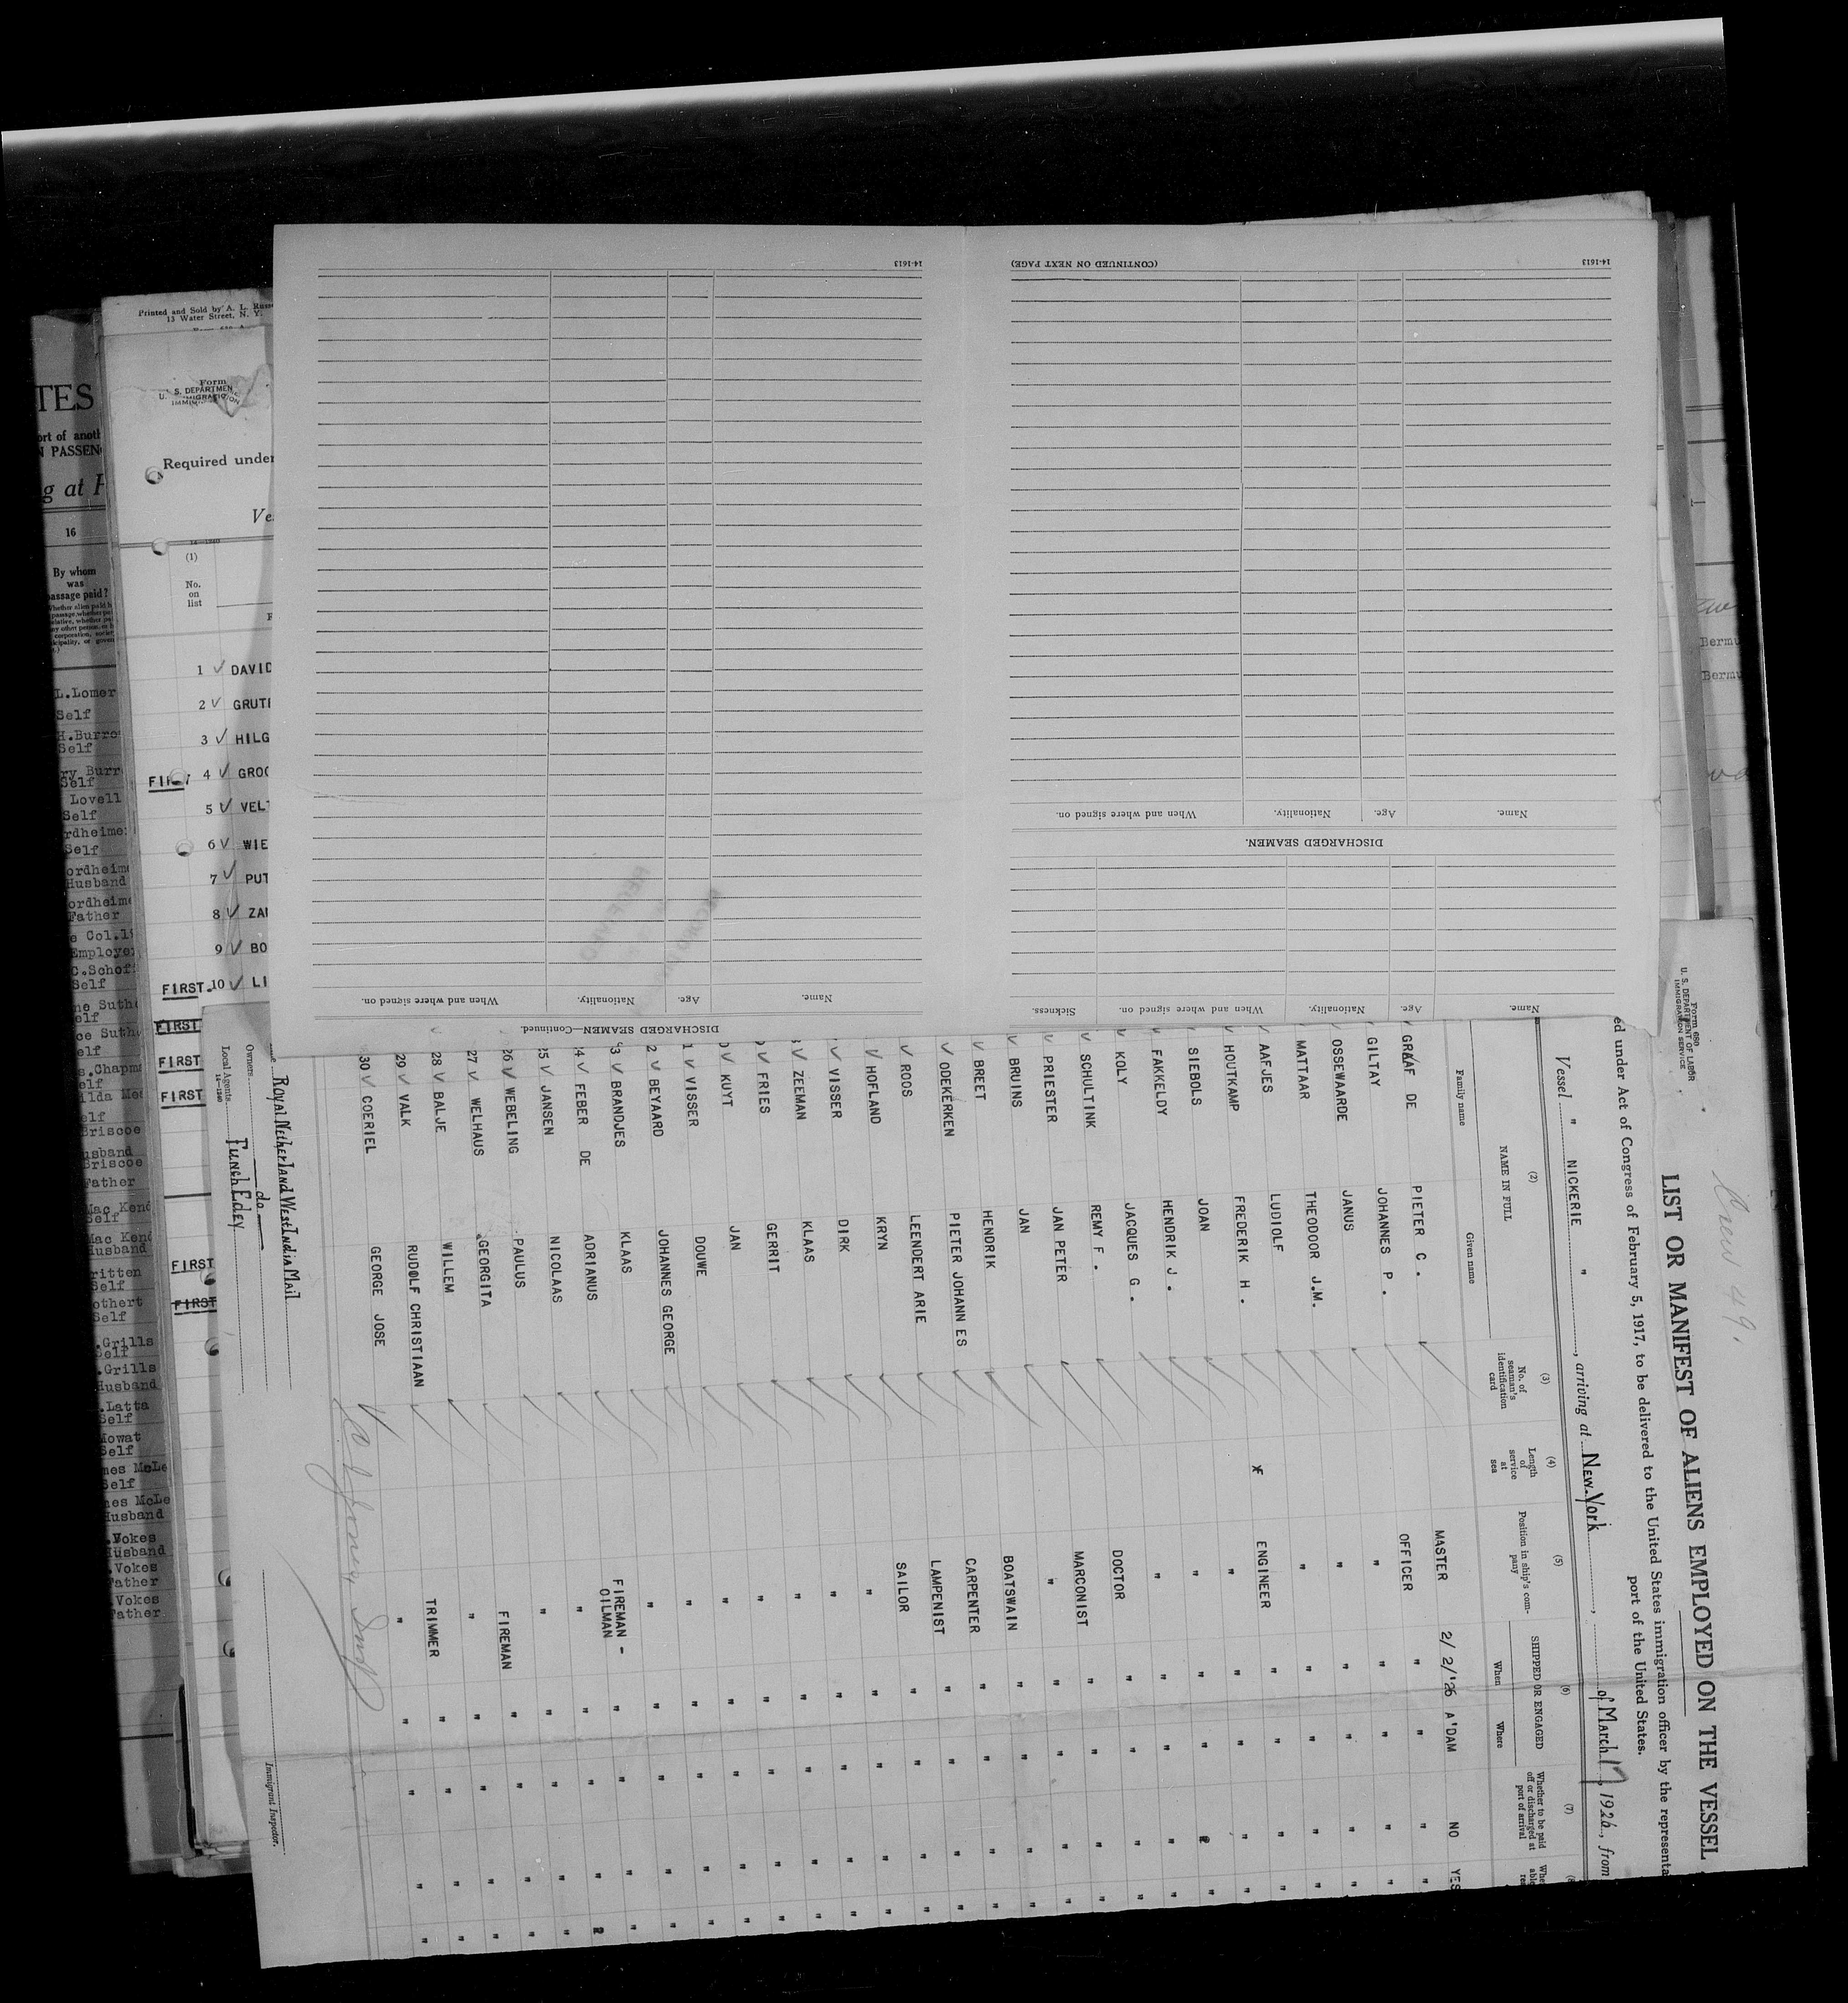 TES
ort of anoth
N PASSEN
g at
16
By whom
was
passage paid?
L.Lomer
Self
H.Burro
Self
ry Burr
Self
Lovell
Self
rdheime
Self
ordheime
Husband
ordheime
Father
e Col.1
Employe
C.Schof
Self
ne Suth
elf
ce Suth
elf
s.Chapm
elf
ilda Mc
elf
Briscoe
usband
Briscoe
Father
Mac Ken
Self
Mac Ken
Husband
ritten
Self
othert
Self
.Grills
Self
.Grills
Husband
.Latta
Self
Mowat
Self
mes McLe
Self
mes McLe
Husband
.Vokes
Husband
.Vokes
Father
.Vokes
Father
Printed and Sold by A. L. Russ
13 Water Street, N. Y.
Form
U. S. DEPARTMEN
IMMIGRATION
Required under
Ve
(1)
No.
on
list
1 ✓ DAVID
2 ✓ GRUTE
3 ✓ HILG
4 ✓ GROO
5 ✓ VEL
6 ✓ WIE
7 ✓ PUT
8 ✓ ZA
9 ✓ BO
FIRST 10 ✓ LI
FIRST
FIRST
FIRST
FIRST
FIRST
14-1613
(CONTINUED ON NEXT PAGE)
14-1613
Name. Age. Nationality. When and where signed on.
DISCHARGED SEAMEN.
Name. Age. Nationality. When and where signed on. Sickness.
DISCHARGED SEAMEN—Continued.
Name. Age. Nationality. When and where signed on.
Bermu
Bermu
Crew 49.
Form 680
U. S. DEPARTMENT OF LABOR
IMMIGRATION SERVICE
LIST OR MANIFEST OF ALIENS EMPLOYED ON THE VESSEL
ed under Act of Congress of February 5, 1917, to be delivered to the United States immigration officer by the representa
port of the United States.
Vessel " NICKERIE ", arriving at New-York, of March 17, 1926, from
(2) (3) (4) (5) (6) (7)
NAME IN FULL
Family name Given name
No. of seaman's identification card
Length of service at sea
Position in ship's company
SHIPPED OR ENGAGED
When Where
Whether to be paid off or discharged at port of arrival
MASTER 2/ 2/'26 A'DAM NO YES
GRAAF DE PIETER C. OFFICER " " " "
GILTAY JOHANNES P. " " " " "
OSSEWAARDE JANUS " " " " "
MATTAAR THEODOOR J.M. " " " " "
AAFJES LUDIOLF ENGINEER " " " "
HOUTKAMP FREDERIK H. " " " " "
SIEBOLS JOAN " " " " "
FAKKELDY HENDRIK J. " " " " "
KOLY JACQUES G. DOCTOR " " " "
SCHULTINK REMY F. MARCONIST " " " "
PRIESTER JAN PETER " " " " "
BRUINS JAN BOATSWAIN " " " "
BREET HENDRIK CARPENTER " " " "
ODEKERKEN PIETER JOHANN ES LAMPENIST " " " "
ROOS LEENDERT ARIE SAILOR " " " "
HOFLAND KRYN " " " " "
VISSER DIRK " " " " "
ZEEMAN KLAAS " " " " "
FRIES GERRIT " " " " "
KUYT JAN " " " " "
VISSER DOUWE " " " " "
BEYAARD JOHANNES GEORGE " " " " "
BRANDJES KLAAS FIREMAN - OILMAN " " " "
FEBER DE ADRIANUS " " " " "
25 ✓ JANSEN NICOLAAS " " " " "
26 ✓ WEBELING PAULUS FIREMAN " " " "
27 ✓ WELHAUS GEORGITA " " " " "
28 ✓ BALJE WILLEM TRIMMER " " " "
29 ✓ VALK RUDOLF CHRISTIAAN " " " " "
30 ✓ COERIEL GEORGE JOSE
Royal Netherland West India Mail
Owners do
Local Agents Funch Edey
14-1240
Immigrant Inspector.